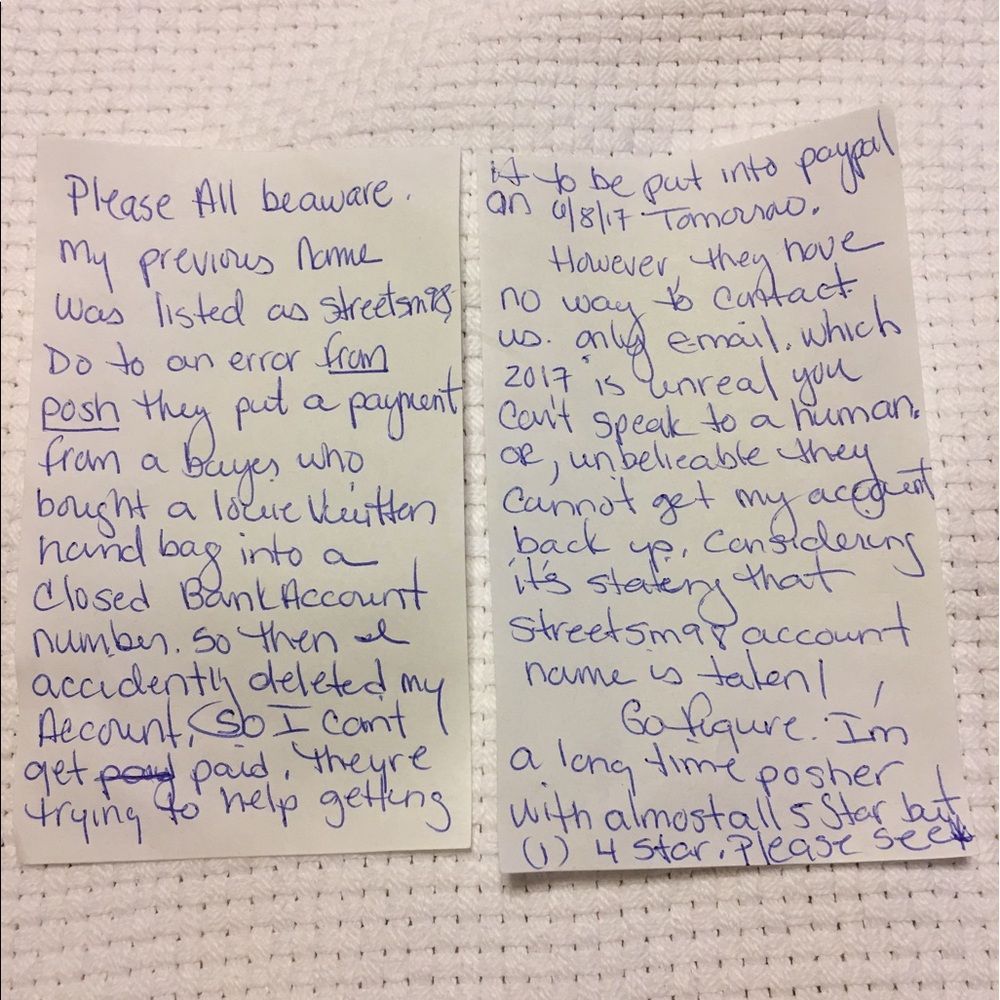 Please All beaware.
My previous name
was listed as streetsm98
Do to an error from
posh they put a payment
from a buyer who
bought a louie Vuitton
hand bag into a
Closed Bank Account
number. So then I
accidently deleted my
Account, (so I cant
get paid, theyre
trying to help getting
it to be put into paypal
on 6/8/17 Tomorrow.
However, they have
no way to contact
us. only email. which
2017 is unreal you
Can't speak to a human.
or, unbelieable they
cannot get my account
back up. Considering
it's stating that
streetsm98 account
name is taken!
Go figure. I'm
a long time posher
with almost all 5 Star but
(1) 4 Star. Please see